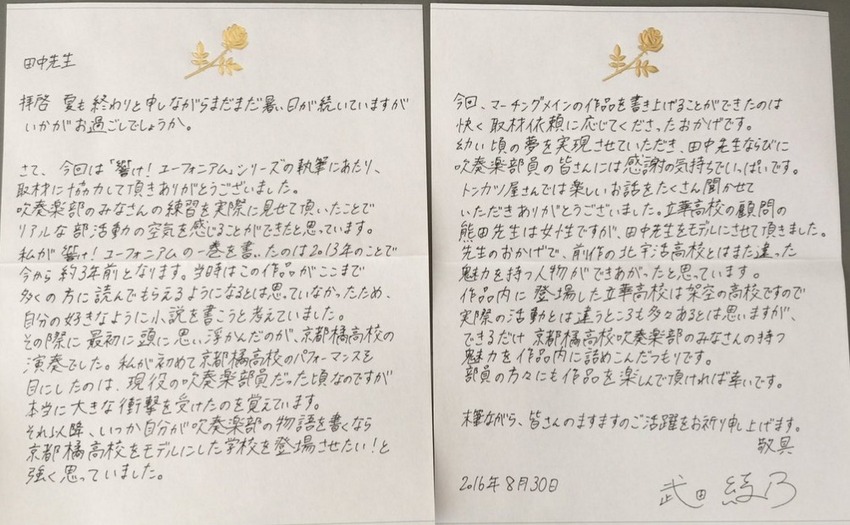 田中先生
拝啓 夏も終わりと申しながらまだまだ暑い日が続いていますが
いかがお過ごしでしょうか。
さて、今回は「響け!ユーフォニアム」シリーズの執筆にあたり、
取材に協力して頂きありがとうございました。
吹奏楽部のみなさんの練習を実際に見せて頂いたことで
リアルな部活動の空気を感じることができたと思っています。
私が響け!ユーフォニアムの一巻を書いたのは2013年のことで
今から約3年前となります。当時はこの作品がここまで
多くの方に読んでもらえるようになるとは思っていなかったため、
自分の好きなように小説を書こうと考えていました。
その際に最初に頭に思い浮かんだのが、京都橘高校の
演奏でした。私が初めて京都橘高校のパフォーマンスを
目にしたのは、現役の吹奏楽部員だった頃なのですが
本当に大きな衝撃を受けたのを覚えています。
それ以降、いつか自分が吹奏楽部の物語を書くなら
京都橘高校をモデルにした学校を登場させたい!と
強く思っていました。
今回、マーチングメインの作品を書き上げることができたのは
快く取材依頼に応じてくださったおかげです。
幼い頃の夢を実現させていただき、田中先生ならびに
吹奏楽部員の皆さんには感謝の気持ちでいっぱいです。
トンカツ屋さんでは楽しいお話をたくさん聞かせて
いただきありがとうございました。立華高校の顧問の
熊田先生は女性ですが、田中先生をモデルにさせて頂きました。
先生のおかげで、前作の北宇治高校とはまた違った
魅力を持つ人物ができあがったと思っています。
作品内に登場した立華高校は架空の高校ですので
実際の活動とは違うところも多々あるとは思いますが、
できるだけ京都橘高校吹奏楽部のみなさんの持つ
魅力を作品内に詰めこんだつもりです。
部員の方々にも作品を楽しんで頂ければ幸いです。
末筆ながら、皆さんのますますのご活躍をお祈り申し上げます。
敬具
2016年8月30日
武田綾乃